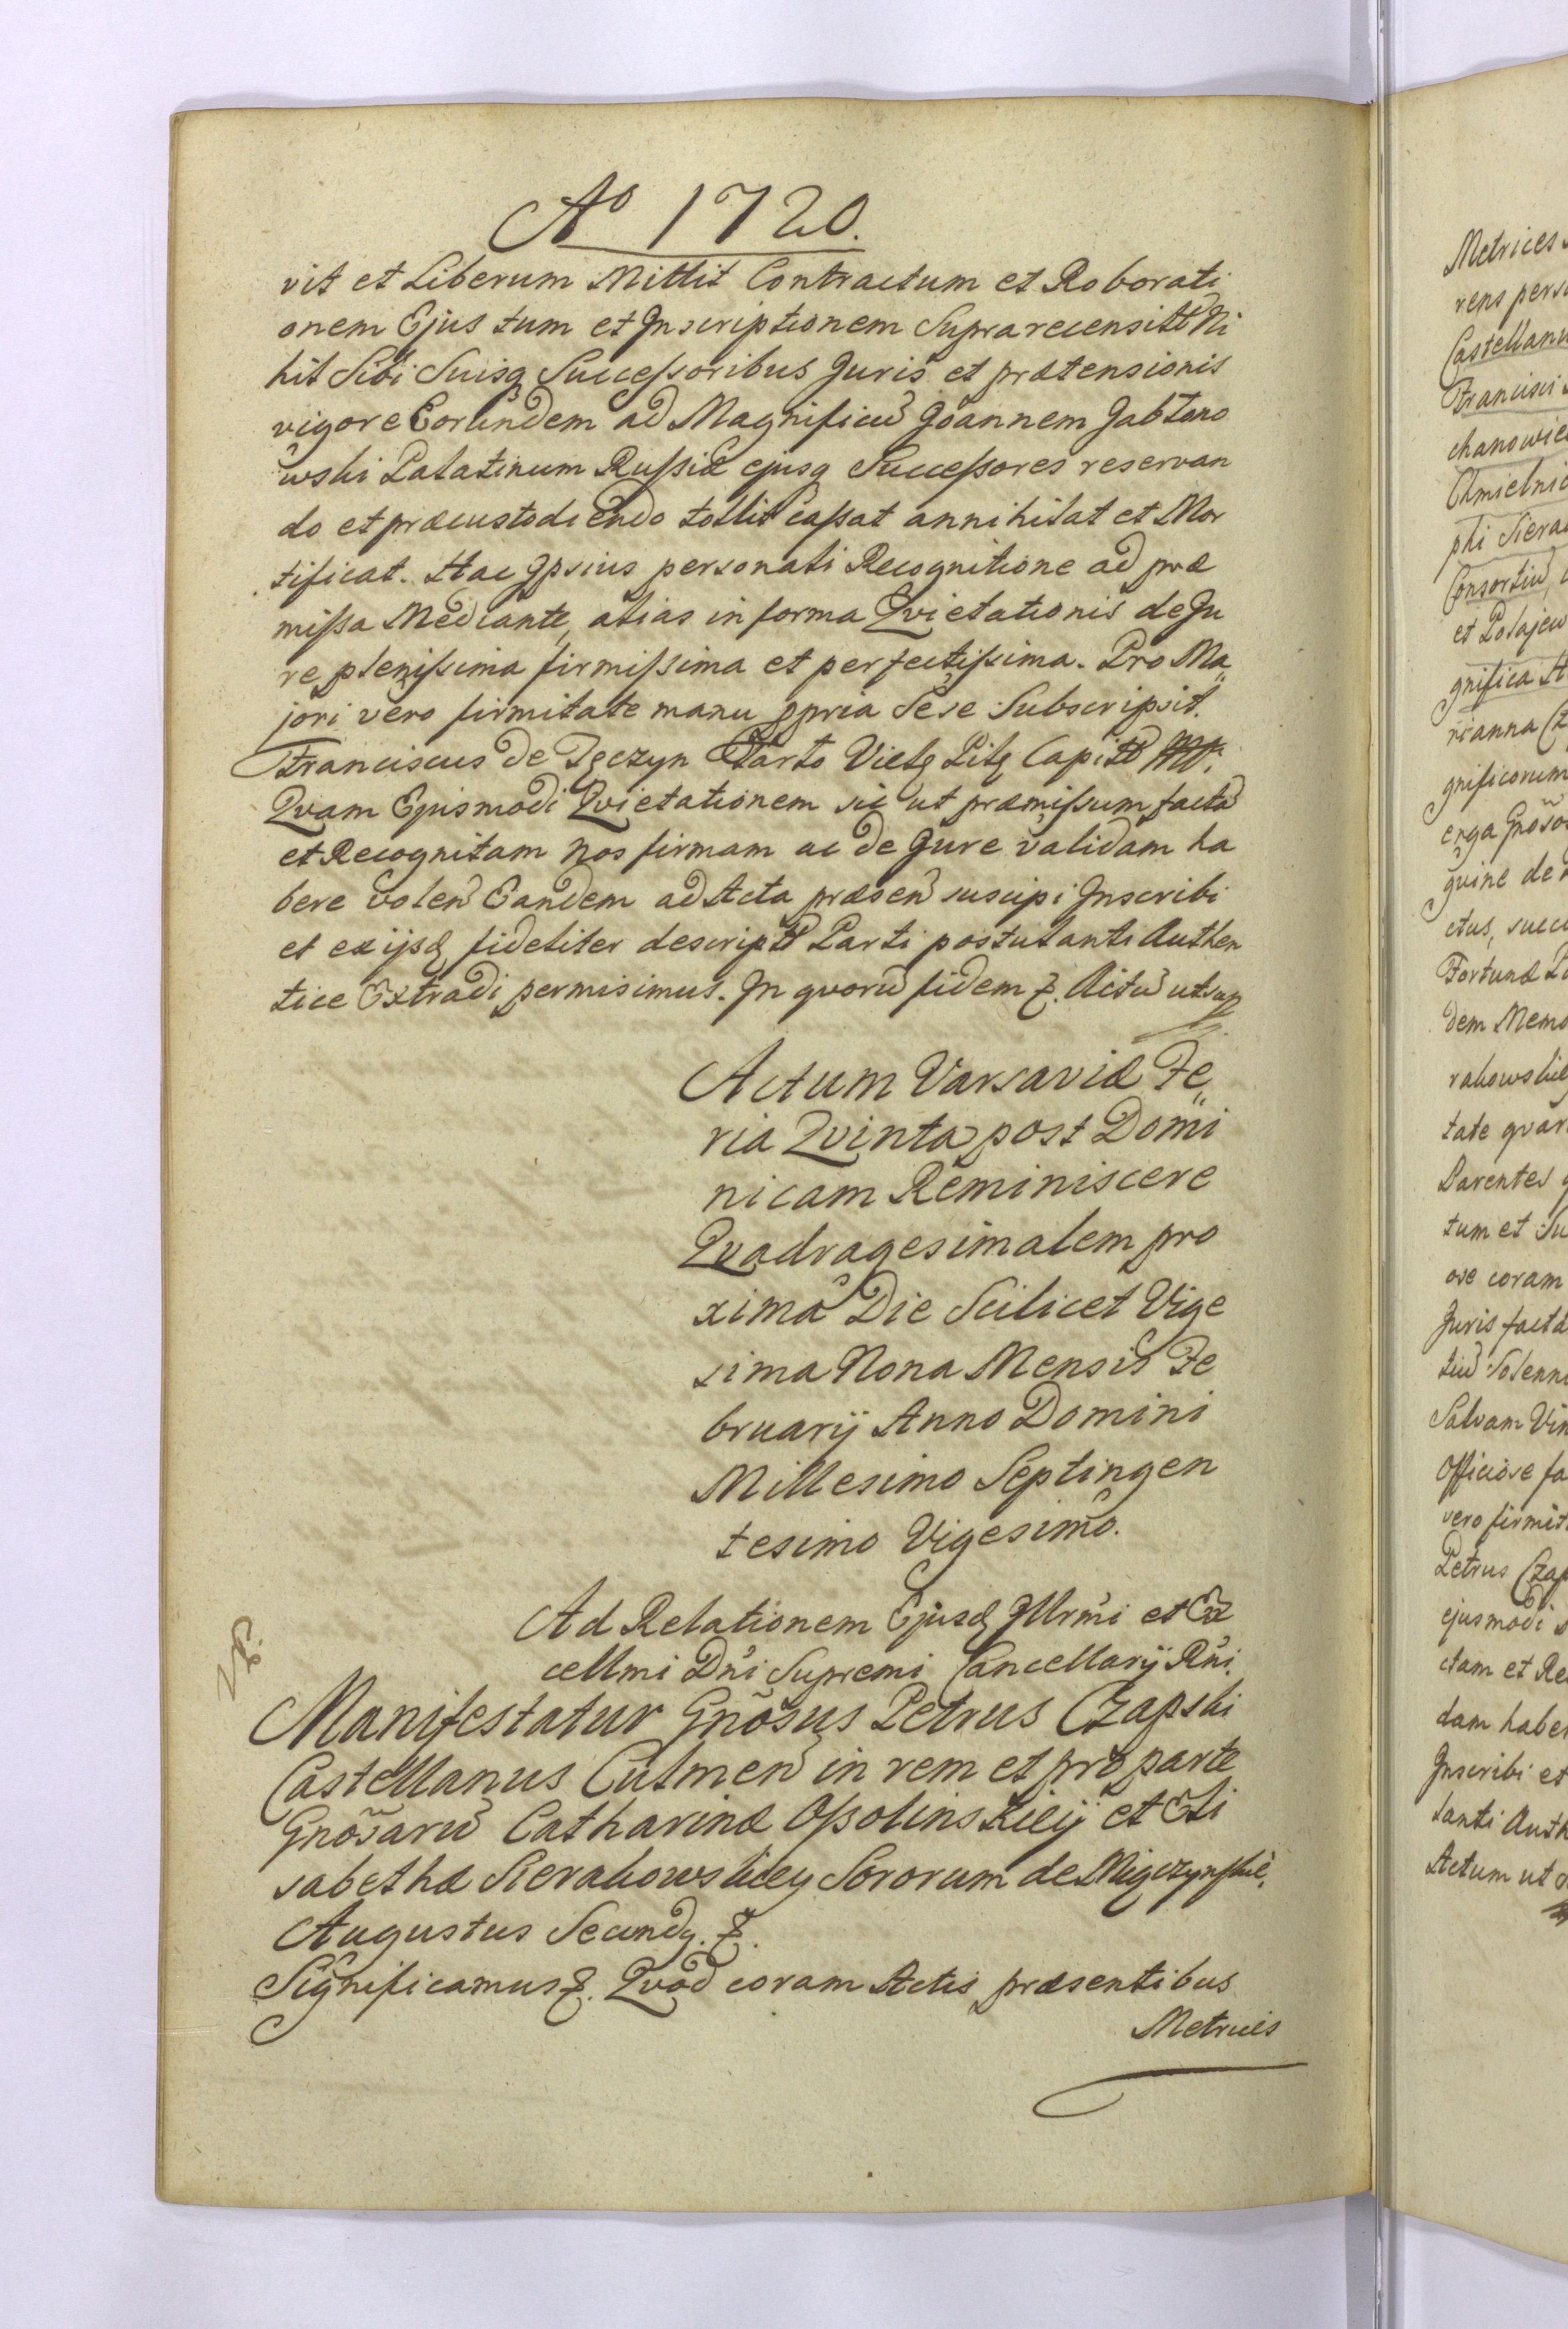 Aº 1720.
vit et Liberum Mittit Contractum et Roborati
onem Ejus tum et Inscriptionem Suprarecensitt Ni
hil Sibi Suisq Successoribus Juris et prætensionis
vigore Eorundem ad Magnificū Joannem Jabłono
wski Palatinum Russiæ ejusq Successores reservan
do et præcustodiendo tollit cassat annihilat et Mor
tificat. Hac Ipsius personali Recognitione ad præ
missa Mediante, alias in forma Qvietationis de Ju
re plenissima firmissima et perfectissima. Pro Ma„
jori vero firmitate manu ppria Sese Subscripsit.
Franciscus de Tęczyn
Qvam Ejusmodi Qvietationem sic ut præmissum factā
et Recognitam Nos firmam ac de Jure validam ha
bere volen Eandem ad Acta præsen suscipi Inscribi
et ex ijsd fideliter descript Parti postulanti Authen
tice Extradi permisimus. In qvorū fidem &. Actū ut sup
Actum Varsaviæ Fe„
ria Qvinta post Domi
nicam Reminiscere
Qvadragesimalem pro
xima Die Scilicet Vige
sima Nona Mensis Fe
bruarij Anno Domini
Millesimo Septingen
tesimo Vigesimo.
Ad Relationem Ejusd Illrmi et Ex
cellmi Dni Supremi Cancellarij Rni.
Manifestatur Gnõsus Petrus Czapski
Castellanus Culmen in rem et pro parte
Gnõsarū Catharinæ Ossolinskiey et Eli
sabethæ Sierakowskiey Sororum de
Augustus Secundq. &.
Significamus &. Qvod coram Actis præsentibus
Metrices
Metrices
rens
Castellanu
Francisci
chanowie
Chmielnic
phi Siera
Consortiū,
et
gnifica
rianna Cz
gnificorum
erga Gnõso
gvine de
ctus, succ
Fortunæ
dem Memo
rakowskie
tate qvar
Parentes
tum et Su
ore coram
Juris facta
tiū Solenn
Salvam Vin
Officiose fa
vero firmit
Petrus Czap
ejusmodi
ctam et Re
dam haber
Inscribi et
lanti Auth
Actum ut